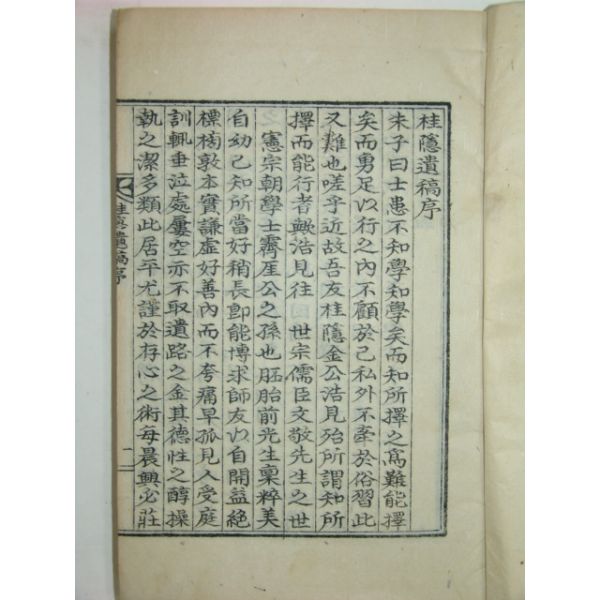 桂隱遺稿序
朱子曰士患不知學知學矣而知所擇之爲難能擇
矣而勇足以行之內不顧於己私外不牽於俗習此
又難也嗟乎近故吾友桂隱金公浩見殆所謂知所
擇而能行者歟浩見往 世宗儒臣文敬先生之世
憲宗朝學士霽厓公之孫也胚胎前光生稟粹美
自幼已知所當好稍長卽能博求師友以自開益絕
標榜敦本實謙虛好善內而不夸痛早孤見人受庭
訓輒垂泣處屢空亦不取遺路之金其德性之醇操
執之潔多類此居平尤謹於存心之術每晨興必莊
桂隱遺稿序